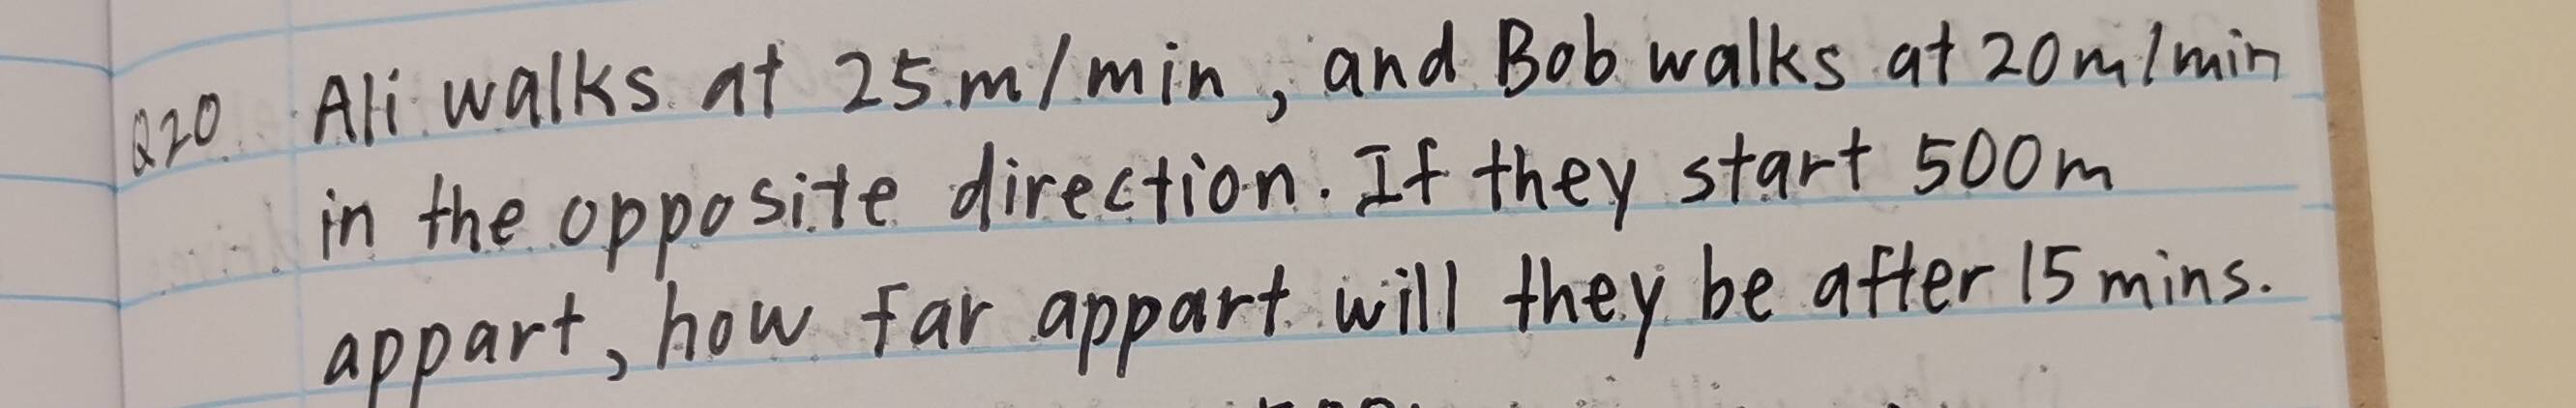 Q20. Ali walks at 25 m/min, and Bob walks at 20m/min
in the opposite direction. If they start 500m
appart, how far appart will they be after 15 mins.